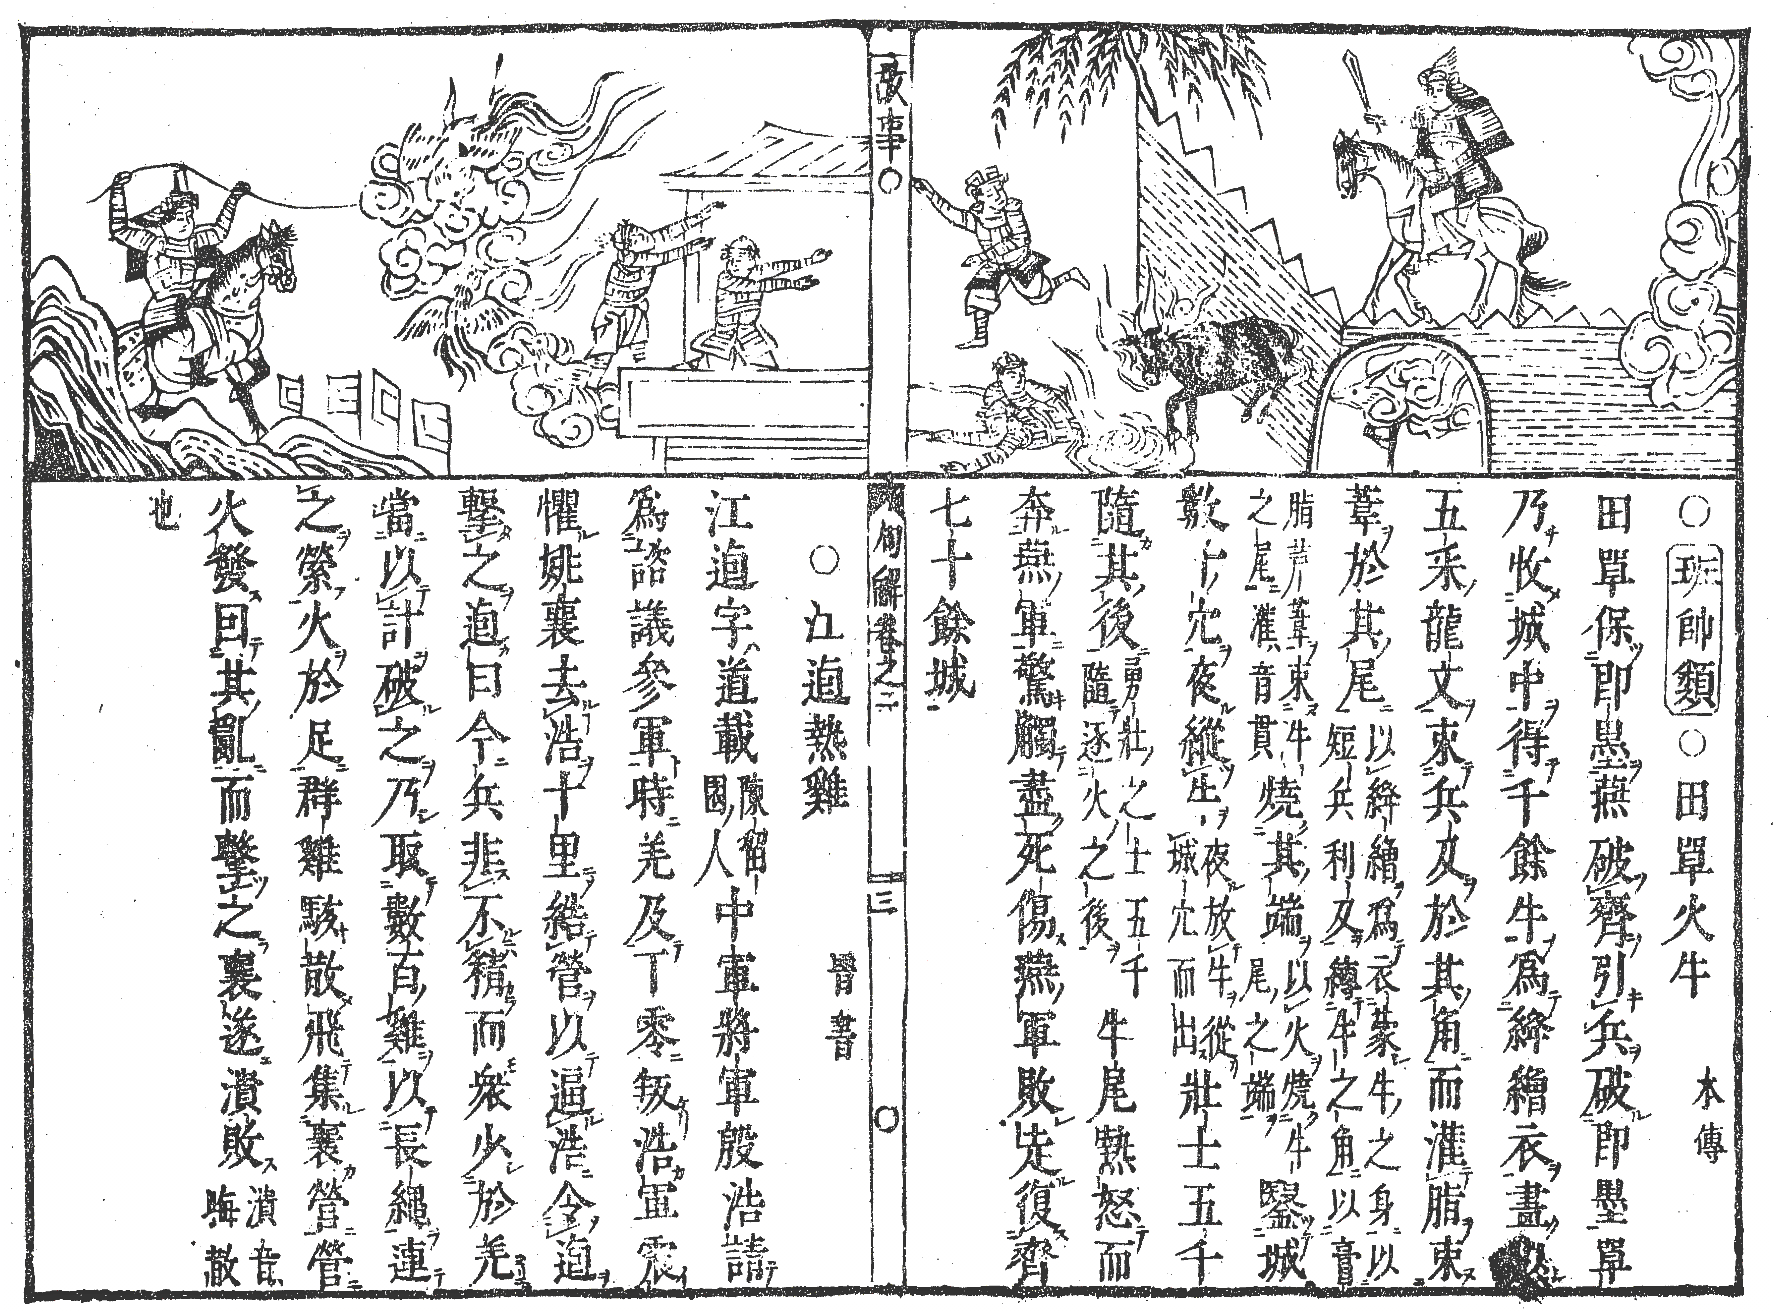 ○班帥類○田單火牛 本傳
田單保即墨燕破齊引兵破即墨單
乃收城中得千餘牛爲絳繒衣畫以
五采龍文束兵刃於其角而灌脂束
葦於其尾以絳繒爲衣蒙牛之身以短兵利刃縛牛之角以膏
脂芦葦束牛之尾灌音貫燒其端以火燒牛尾之端鑿城
數十穴夜縱牛夜放牛從城穴而出壯士五千
隨其後勇壯之士五千隨逐火之後牛尾熱怒而
奔燕軍驚觸盡死傷燕軍敗走復齊
七十餘城
故事○
句解卷之二
三
○江逌熱雞 晉書
江逌字道載陳留圉人中軍將軍殷浩請
爲諮議參軍時羌及丁零叛浩軍震
懼姚襄去浩十里結營以逼浩令逌
擊之逌曰今兵非不精而衆少於羌
當以計破之乃取數百雞以長繩連
之縈火於足群雞駭散飛集襄營營
火發因其亂而擊之襄遂潰敗潰音誨散
也